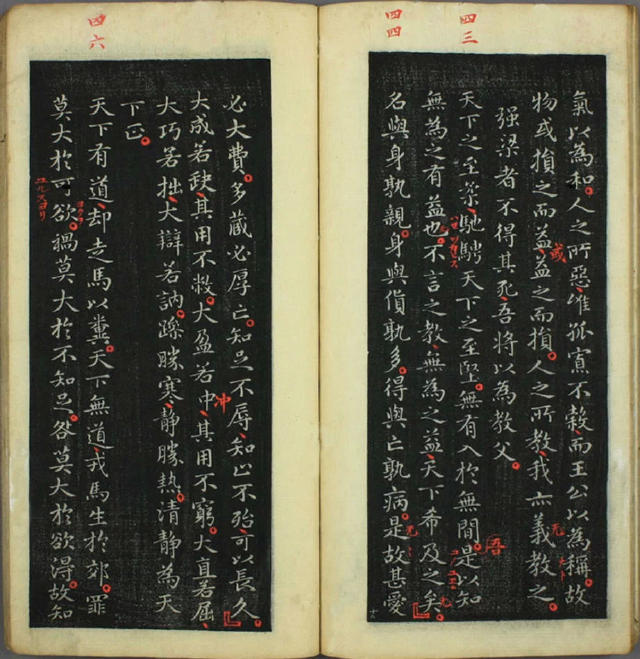 四三
四四
氣以為和。人之所惡、唯孤寡不穀、而王公以為稱。故
物或損之而益、益之而損。人之所教、我亦義教之。
或
强梁者不得其死、吾將以為教父。
天下之至柔、馳騁天下之至堅。無有入於無間。是以知
吾
無為之有益也。不言之教、無為之益、天下希及之矣。
名與身孰親。身與貨孰多。得與亡孰病。是故甚愛
四六
必大費。多藏必厚亡。知足不辱、知止不殆、可以長久。
大成若缺、其用不敝。大盈若中、其用不窮。大直若屈、
冲
大巧若拙、大辯若訥。躁勝寒、靜勝熱。清靜為天
下正。
天下有道、却走馬以糞。天下無道、戎馬生於郊。罪
莫大於可欲。禍莫大於不知足。咎莫大於欲得。故知
ユルスヨリ